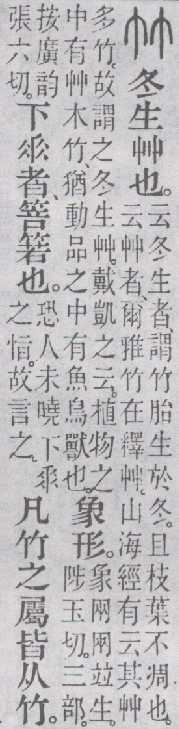 竹 冬生艸也。云冬生者。謂竹胎生於冬。且枝葉不凋也。云艸者。爾雅竹在釋艸。山海經有云其艸
多竹。故謂之冬生艸。戴凱之云。植物之中有艸木竹。猶動品之中有魚鳥獸也。象形。象㒳㒳竝生。陟玉切。三部。
按廣韵張六切。下𠂹者、箁箬也。恐人未曉下𠂹之恉。故言之。凡竹之屬皆从竹。